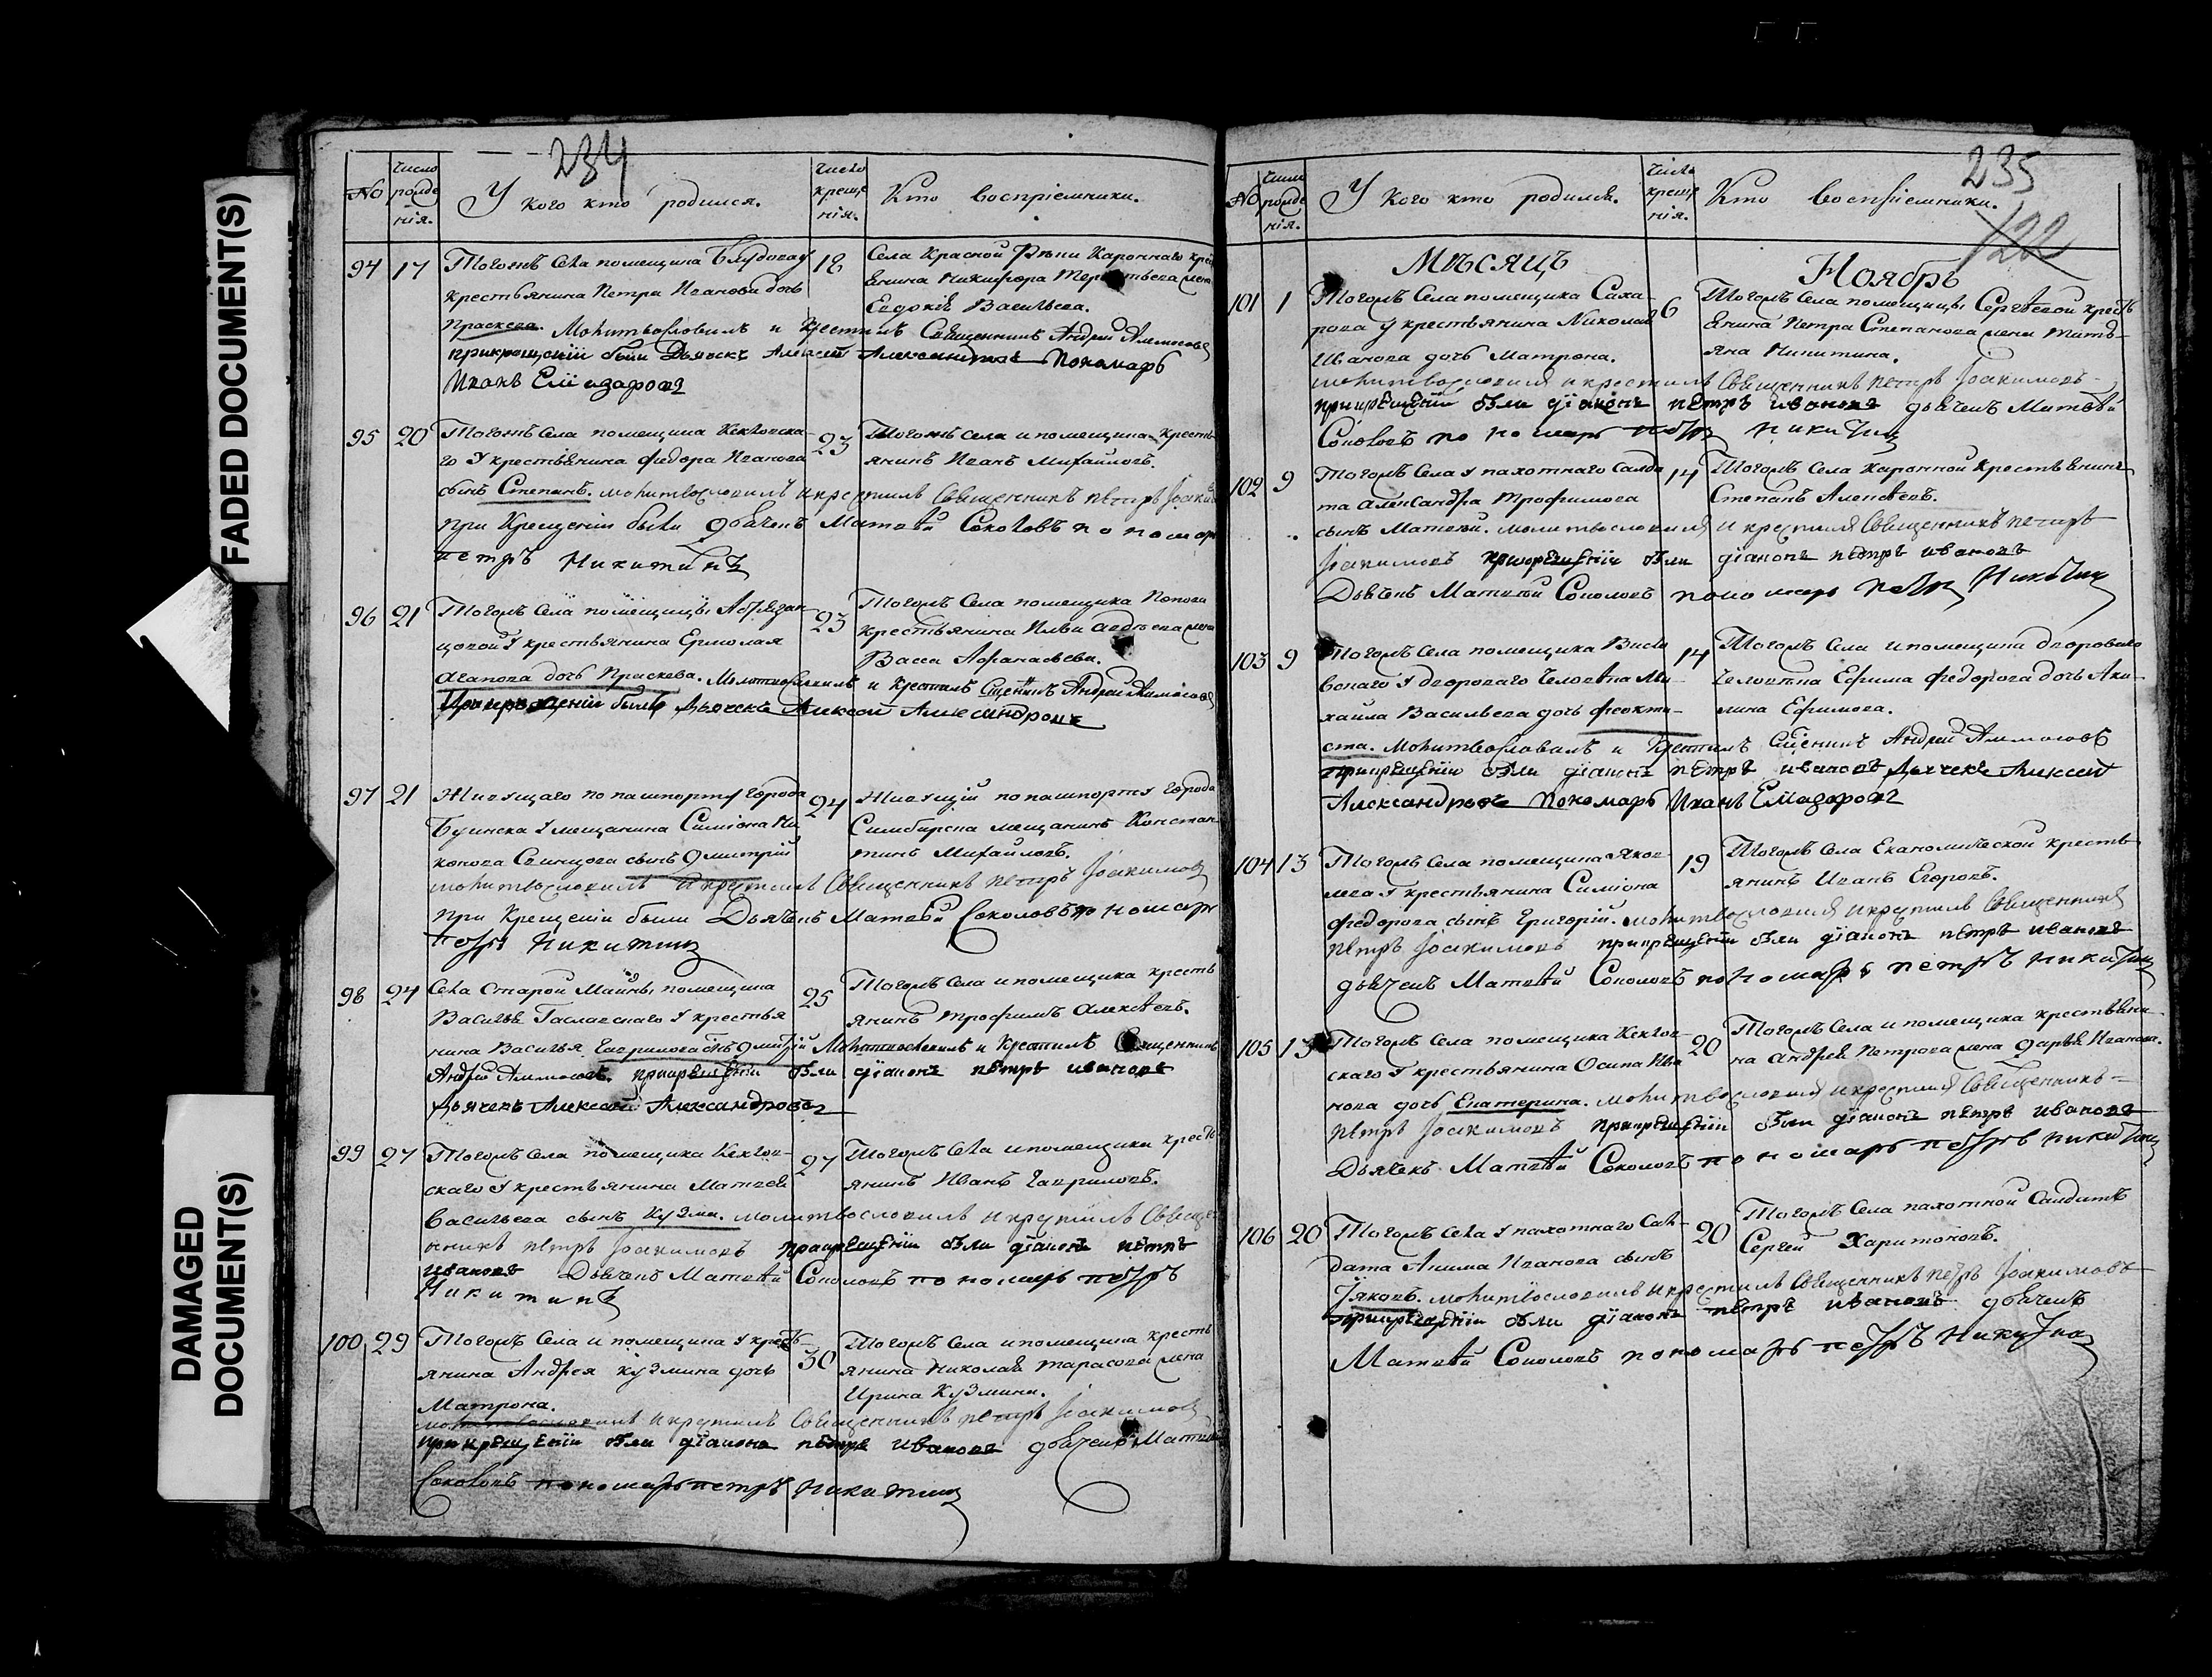 FADED DOCUMENT(S)
DAMAGED
DOCUMENT(S)
234
No
число рожде нія.
У кого кто родился.
число креще нія.
Кто воспріемники.
94 17
Тогожъ села помещика Блудова у
крестьянина Петра Иванова дочь
Праскева. Молитвословилъ и крестилъ Священникъ Андрей Аммосовъ
прикрещеніи были Дьячекъ Алексей Александровъ Пономарь
Иванъ Елиазаровъ
18
Села Красной Реки Каронного крес
янина Никифора жена
Евдокія Васильева.
95 20
Тогожъ села помещика
го у крестьянина Федора Иванова
сынъ Степанъ. молитвословилъ и крестилъ Священникъ Петръ
При Крещеніи были дьячекъ Матвѣй Соколовъ пономарь
петръ Никитинъ
23
Тогожъ села и помещика кресть
янинъ Иванъ Михайловъ.
96 21
Тогожъ Села помещицы
у крестьянина Ермолая
Агапова дочь Праскева. Молитвословилъ и Крестилъ Сщенникъ Андрей Аммосовъ
При крещеніи былъ Дьячекъ Алексей Александровъ
23
Тогожъ Села помещика Попова
крестьянина Ильи Авдеева жена
Васса Афанасьева.
97 21
Живущаго по пашпорту города
Буинска у мещанина Симіона Ни
конова Свинцова сынъ Дмитрій
молитвословилъ и крестилъ Священникъ петръ Іоакимовъ
При Крещеніи были Дьячекъ Матвѣй Соколовъ пономарь
петръ Никитинъ
24
Живущій по пашпорту города
Симбирска мещанинъ Констан
тинъ Михайловъ.
98 24
Села Старой Майны помещика
Василья у крестья
нина Василья Гаврилова сынъ Дмитрій Молитвословилъ и Крестилъ Священникъ
Андрей Аммосовъ. прикрещеніи были діаконъ петръ ивановъ
Дьячекъ Алексей Александровъ
25
Тогожъ Села и помещика кресть
янинъ Трофимъ Алексѣевъ.
99 27
Тогожъ Села помещика
скаго у крестьянина Матвея
Васильева сынъ Кузма. молитвословилъ и крестилъ Свяще
нникъ петръ Іоакимовъ прикрещеніи были діаконъ петръ
ивановъ Дьячекъ Матвѣй Соколовъ пономарь петръ
Никитинъ
27
Тогожъ Села и помещика кресть
янинъ Иванъ Гавриловъ.
100 29
Тогожъ Села и помещика у кресть
янина Андрея Кузмина дочь
Матрона.
молитвословилъ и крестилъ Священникъ петръ Іоакимовъ
прикрещеніи были діаконъ петръ ивановъ дьячекъ Матвѣй
Соколовъ пономарь петръ Никитинъ
30
Тогожъ Села и помещика кресть
янина Николая Тарасова жена
Ирина Кузмина.
235
122
No
число рожде нія.
У кого кто родился.
число креще нія.
Кто воспріемники.
Мѣсяцъ Ноябрь
101 1
Тогожъ Села помещика Саха
рова у крестьянина Николая
Иванова дочь Матрона.
молитвословилъ и крестилъ Священникъ петръ Іоакимовъ
прикрещеніи были діаконъ петръ ивановъ дьячекъ Матвѣй
Соколовъ пономарь петръ никитинъ
6
Тогожъ Села помещицы Сергѣевой кресть
янина Петра Степанова жена Татья
яна Никитина.
102 9
Тогожъ Села у пахотнаго Салда
та Александра Трофимова
сынъ Матвей. молитвословилъ и крестилъ Священникъ петръ
Іоакимовъ прикрещеніи были діаконъ петръ ивановъ
Дьячекъ Матвѣй Соколовъ пономарь петръ Никитинъ
14
Тогожъ Села Каронной Крестьянинъ
Степанъ Алексѣевъ.
103 9
Тогожъ Села помещика
у двороваго Человѣка Ми
хаила Васильева дочь Феокти
ста. Молитвословилъ и Крестилъ Сщенникъ Андрей Аммосовъ
прикрещеніи были діаконъ петръ ивановъ Дьячекъ Алексей
Александровъ Пономарь Иванъ Елиазаровъ
14
Тогожъ Села и помещика двороваго
Человѣка Ефима Федорова дочь Аку
лина Ефимова.
104 13
Тогожъ Села помещика Яков
лева у крестьянина Симіона
Федорова сынъ Григорій. молитвословилъ и крестилъ Священникъ
петръ Іоакимовъ прикрещеніи были діаконъ петръ ивановъ
дьячекъ Матвѣй Соколовъ пономарь петръ никитинъ
19
Тогожъ Села Экономической кресть
янинъ Иванъ Егоровъ.
105 15
Тогожъ Села помещика
скаго у крестьянина Осипа Ива
нова дочь Екатерина. молитвословилъ и крестилъ Священникъ
петръ Іоакимовъ прикрещеніи были діаконъ петръ ивановъ
Дьячекъ Матвѣй Соколовъ пономарь петръ никитинъ
20
Тогожъ Села и помещика крестьяни
на Андрея Петрова жена Дарья Иванова.
106 20
Тогожъ Села у пахотнаго Сал
дата Акима Иванова сынъ
Іаковъ. молитвословилъ и крестилъ Священникъ петръ Іоакимовъ
прикрещеніи были діаконъ петръ ивановъ дьячекъ
Матвѣй Соколовъ пономарь петръ никитинъ
20
Тогожъ Села пахотной Салдатъ
Сергей Харитоновъ.